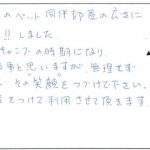 のペット同伴部屋の良さに
!! しました。
キャンプの時期になり、
事と思いますが、無理せず
その"笑顔"をつづけて下さい。
をつけて利用させて頂きます。